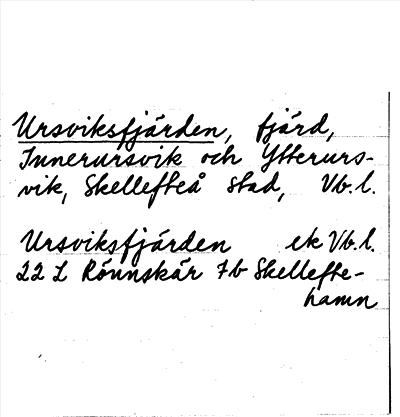 Ursviksfjärden, fjärd,
Innerursvik och Ytterurs-
vik, Skellefteå stad, Vb.l.
Ursviksfjärden ek Vb.l.
22 L Rönnskär 7b Skellefte-
hamn